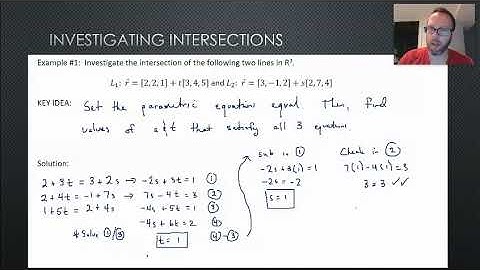 INVESTIGATING INTERSECTIONS
Example #1: Investigate the intersection of the following two lines in R³.
L₁: r⃗ = [2,2,1] + t[3,4,5] and L₂: r⃗ = [3,-1,2] + s[2,7,4]
KEY IDEA: Set the parametric equation equal. Then, find
values of s & t that satisfy all 3 equations.
Solution:
2+3t = 3+2s → -2s+3t = 1 ①
2+4t = -1+7s → 7s-4t = 3 ②
1+5t = 2+4s → -4s+5t = 1 ③
# Solve ①/③
-4s+6t = 2 ④
t = 1 ④-③
Sub in ①
-2s+3(1) = 1
-2s = -2
s = 1
Check in ②
7(1)-4(1) = 3
3 = 3 ✓✓